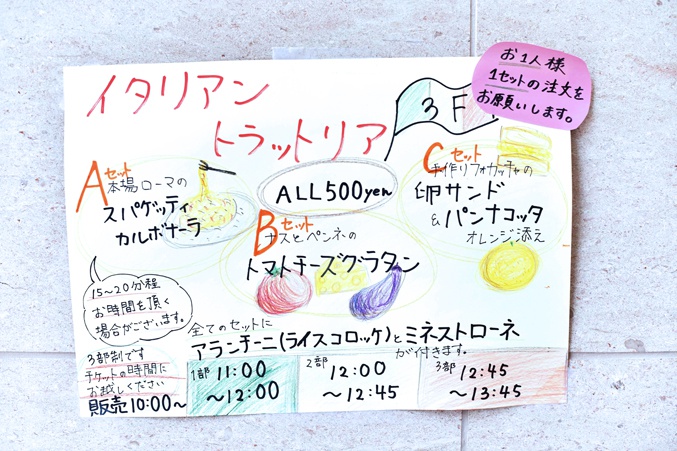 イタリアン
トラットリア
3F
お1人様
1セットの注文を
お願いします。
Aセット
本場ローマの
スパゲッティ
カルボナーラ
ALL500yen
Bセット
ナスとペンネの
トマトチーズグラタン
Cセット
手作りフォカッチャの
卵サンド
&パンナコッタ
オレンジ添え
15~20分程
お時間を頂く
場合がございます。
全てのセットに
アランチーニ(ライスコロッケ)とミネストローネ
が付きます。
3部制です
チケットの時間に
お越しください
販売10:00~
1部 11:00
~12:00
2部 12:00
~12:45
3部 12:45
~13:45